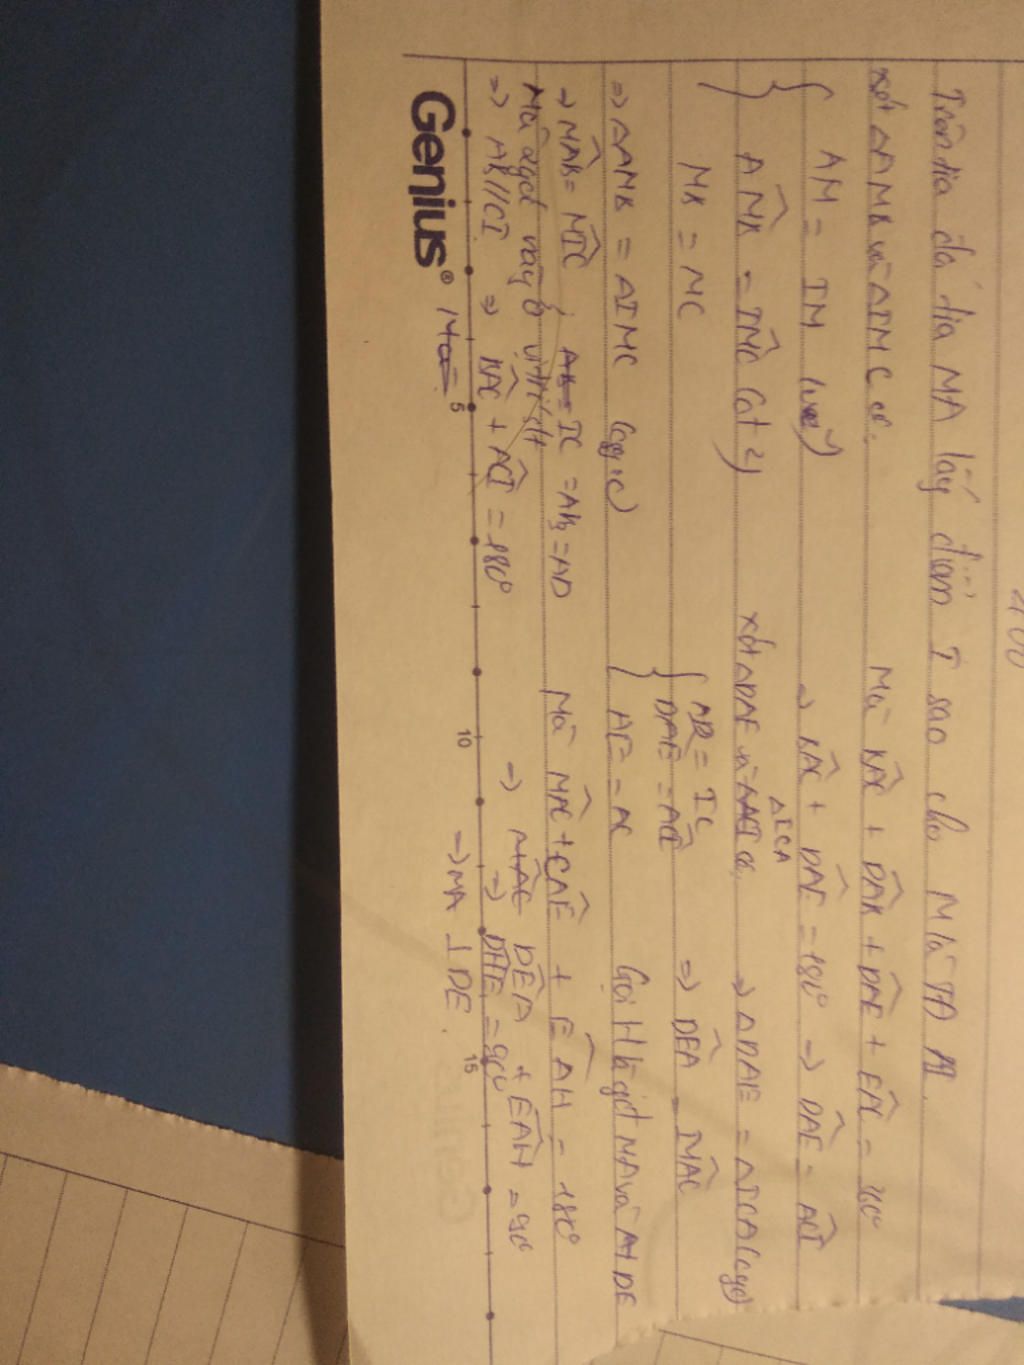 Trên tia đối tia MA lấy điểm I sao cho M là TĐ AI.
xét ΔAMB và ΔIMC có.
AM = IM (
AMB = IMC (đđ)
MB = MC
=> ΔAMB = ΔIMC (cgc)
=> MAB = MIC ; AB = IC = AB = AD
Mà 2 góc này ở vị trí slt
=> AB//CI => BAC + ACI = 180°
Mà
Mà BAC + DAB + DAE + EAC = 360°
=> BAC + DAE = 180° => DAE = ACI
xét ΔDAE và ΔACI có. ΔICA
AD = IC
DAE = ACI
AE = AC
=> ΔDAE = ΔICA (cgc)
=> DEA = MAC
Gọi H là gđ MA và DE
Mà MAC + CAE + EAH = 180°
=> MAC DEA + EAH = 90°
=> DHE = 90°
=> MA ⊥ DE.
Genius®
5
10
15